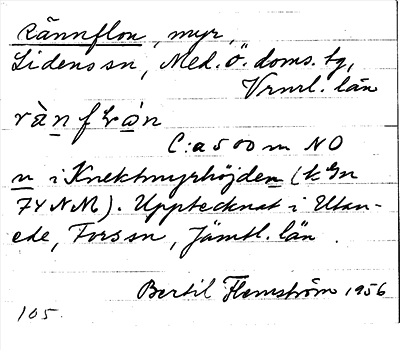 Rännflon, myr,
Lidens sn, Med. ö. doms. tg,
Vrnrl. län
C:a 500 m NO
n i Knektmyrhöjden (k. Gn
74 NM). Upptecknat i Utan-
ede, Fors sn, Jämtl. län.
Bertil Flemström 1956
105.